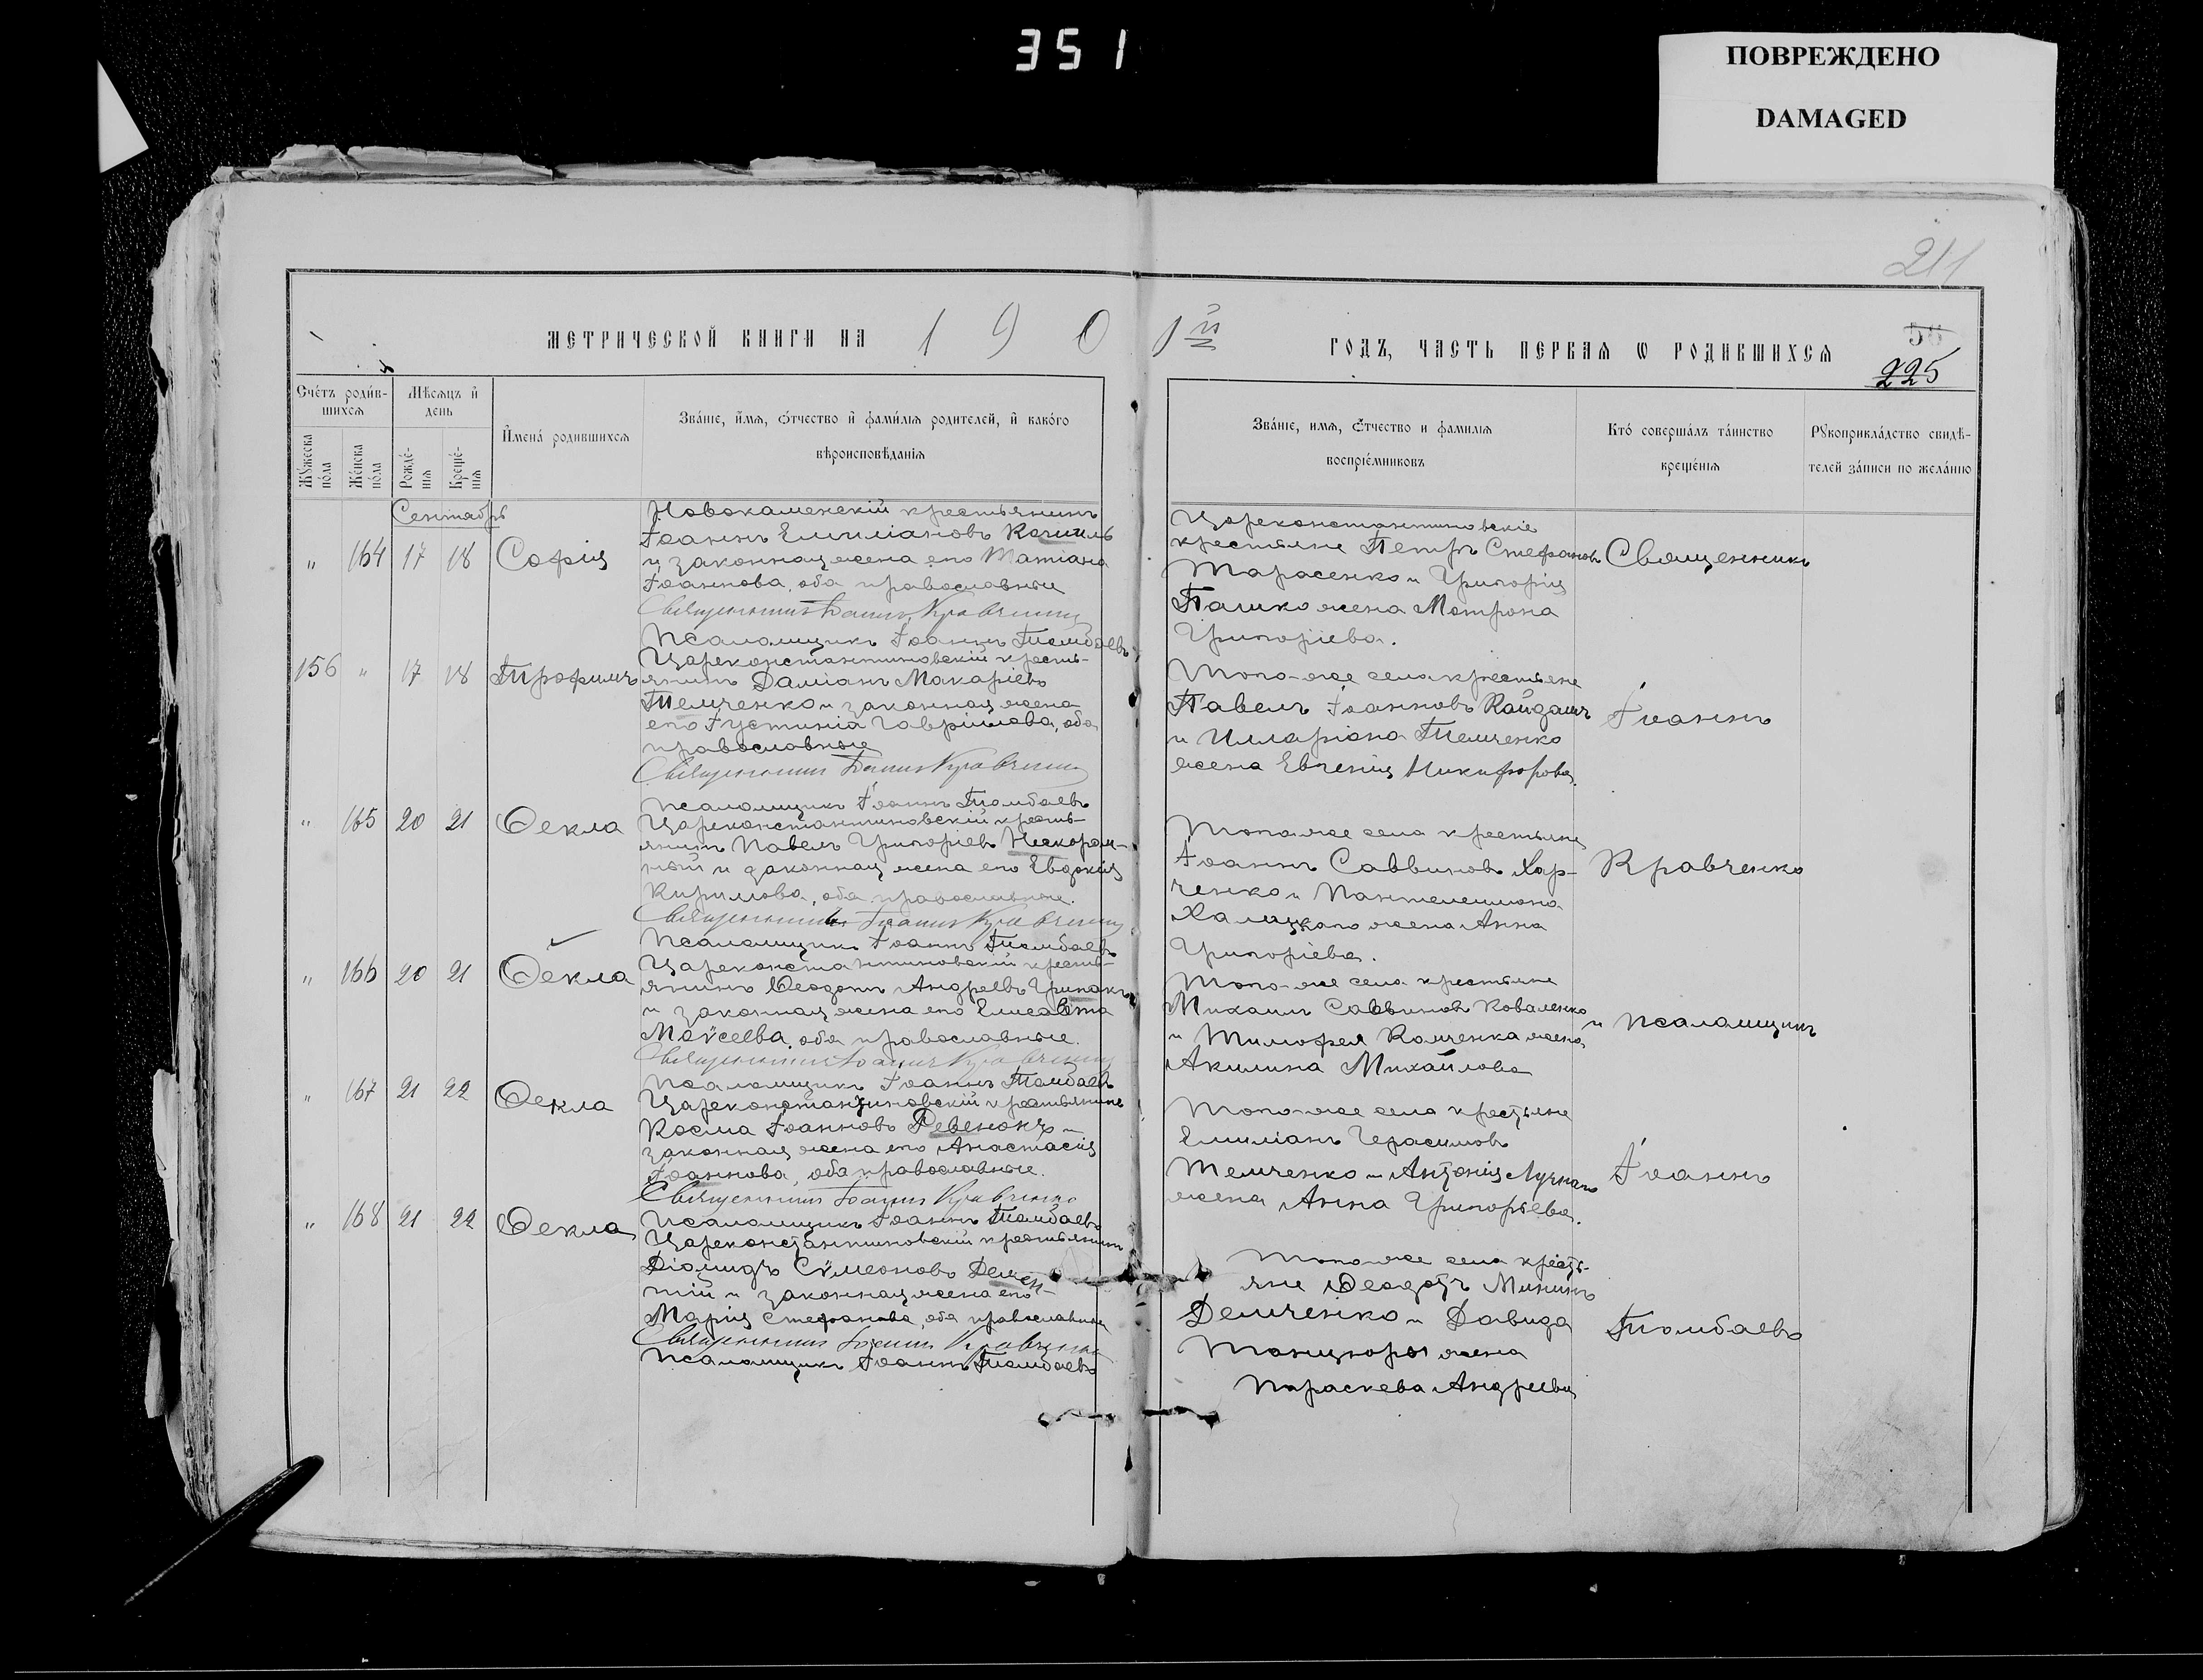 351
ПОВРЕЖДЕНО
DAMAGED
211
МЕТРИЧЕСКОЙ КНИГИ НА 190
1й ГОДЪ, ЧАСТЬ ПЕРВАЯ Ѡ РОДИВШИХСЯ
58
225
Сче́тъ роди́в-
шихся
Мѣ́сяцъ и҆
день
Мꙋ́жеска
по́ла
Же́нска
по́ла
Рожде́-
нїя
Креще́-
нїя
И҆мена̀ роди́вшихся
Зва́нїе, и҆́мя, ѻ҆́тчество и҆ фами́лїя роди́телей, и҆ како́го
вѣроисповѣ́данїя
Зва́нїе, имя, ѻ҆́тчество и фамилїя
воспрїе́мниковъ
Кто̀ соверша́лъ та́инство
креще́нїя
Рꙋкоприкла́дство свидѣ́-
телей за́писи по жела́нїю
Сентябрь
" 164 17 18 Софія
Новокаменскій крестьянинъ
Іоаннъ Емиліановъ
и законная жена его Татіана
Іоаннова, оба православные
Священникъ Іоаннъ Кравченко
Псаломщикъ Іоаннъ Томбаевъ
Цареконстантиновскіе
крестьяне Петръ Стефановъ
Тарасенко и Григорія
Пашко жена Мотрона
Григоріева.
156 " 17 18 Трофимъ
Цареконстантиновскій кресть-
янинъ Даміанъ Макаріевъ
Темченко и законная жена
его Іустинія Гавріилова, оба
православные
Священникъ Іоаннъ Кравченко
Псаломщикъ Іоаннъ Томбаевъ
Того-же села крестьяне
Павелъ Іоанновъ Кайдашъ
и Илларіона Темченко
жена Евгенія Никифорова.
" 165 20 21 Ѳекла
Цареконстантиновскій кресть-
янинъ Павелъ Григоріевъ Нескором-
ный и законная жена его Евдокія
Кирилова, оба православные.
Священникъ Іоаннъ Кравченко
Псаломщикъ Іоаннъ Томбаевъ
Того-же села крестьяне
Іоаннъ Саввиновъ Хар-
ченко и Пантелеимона
жена Анна
Григоріева.
" 166 20 21 Ѳекла
Цареконстантиновскій кресть-
янинъ Ѳеодотъ Андреевъ
и законная жена его Елисавета
Моѵсеева, оба православные.
Священникъ Іоаннъ Кравченко
Псаломщикъ Іоаннъ Томбаевъ
Того-же села крестьяне
Михаилъ Саввиновъ Коваленко
и Тимофея жена
Акилина Михайлова
" 167 21 22 Ѳекла
Цареконстантиновскій крестьянинъ
Косма Іоанновъ Ревенокъ и
законная жена его Анастасія
Іоаннова, оба православные.
Священникъ Іоаннъ Кравченко
Псаломщикъ Іоаннъ Томбаевъ
Того-же села крестьяне
Емиліанъ Герасимовъ
Темченко и Антонія
жена Анна Григорьева.
" 168 21 22 Ѳекла
Цареконстантиновскій крестьянинъ
Діомидъ Сѵмеоновъ
и законная жена его
Марія Стефанова, оба православные
Священникъ Іоаннъ Кравченко
Псаломщикъ Іоаннъ Томбаевъ
Того-же села кресть-
яне Ѳеодотъ Мининъ
Демченко и Давида
Танцюры жена
Параскева Андреева
Священникъ
Іоаннъ
Кравченко
и Псаломщикъ
Іоаннъ
Томбаевъ